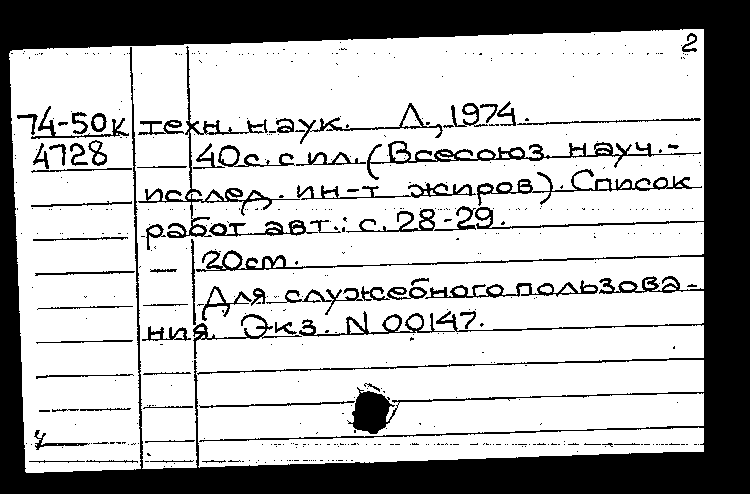 2
74-50к техн. наук. Л., 1974.
4728 40с. с ил. (Всесоюз. науч.-
исслед. ин-т жиров). Список
работ авт.: с. 28-29.
20см.
Для служебного пользова-
ния. Экз. N 00147.